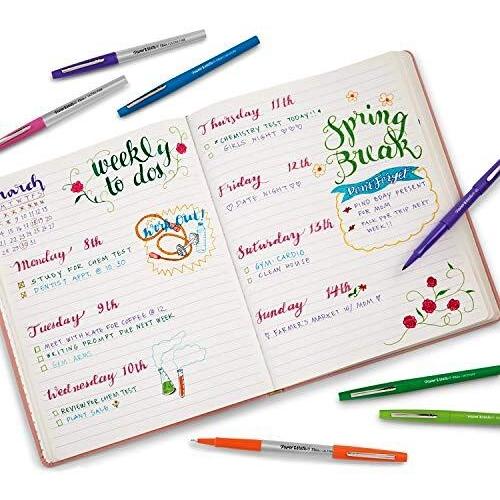 Paper Mate
Paper Mate
Paper Mate
march
weekly
to dos
Monday 8th
STUDY FOR CHEM TEST
DENTIST APPT. @ 10:30
work out!
Tuesday 9th
MEET WITH KATE FOR COFFEE @ 12
WRITING PROMPT DUE NEXT WEEK
GYM: ARMS
Wednesday 10th
REVIEW FOR CHEM TEST
PLANT SALE
Thursday 11th
CHEMISTRY TEST TODAY!!
GIRLS NIGHT ♡♡♡
Friday 12th
♡ DATE NIGHT ♡♡
Saturday 13th
GYM: CARDIO
CLEAN HOUSE
Sunday 14th
♡ FARMER'S MARKET W/ MOM ♡
Spring
Break
Don't Forget
FIND BDAY PRESENT
FOR MOM
PACK FOR TRIP NEXT
WEEK!!
Paper Mate
Paper Mate
Paper Mate
Paper Mate